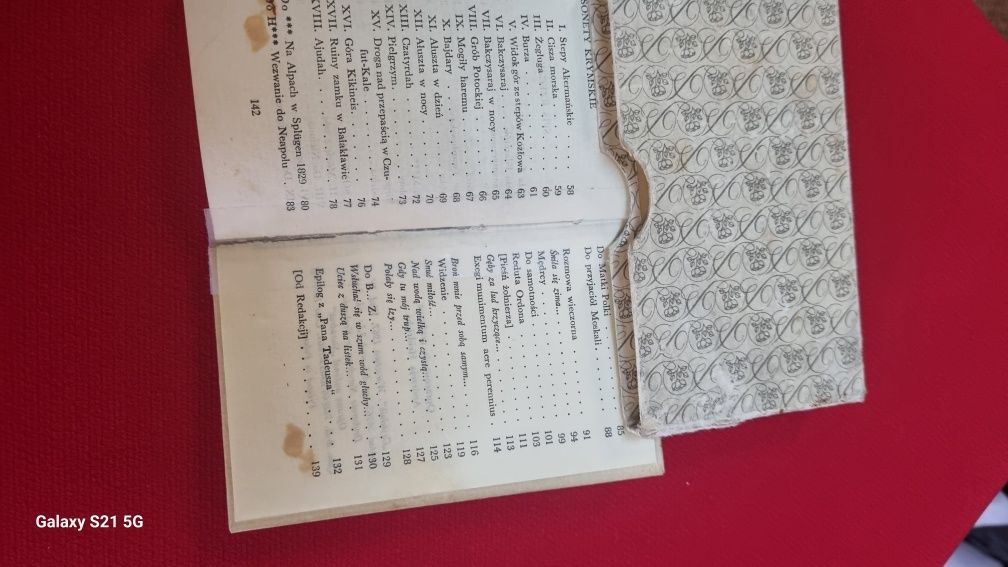 SONETY KRYMSKIE
I. Stepy Akermańskie . . . . . 58
II. Cisza morska . . . . . . 59
III. Żegluga . . . . . . . 60
IV. Burza . . . . . . . . 61
V. Widok gór ze stepów Kozłowa 63
VI. Bakczysaraj . . . . . . 64
VII. Bakczysaraj w nocy . . . . 65
VIII. Grób Potockiej . . . . . 66
IX. Mogiły haremu . . . . . 67
X. Bajdary . . . . . . . 68
XI. Ałuszta w dzień . . . . . 69
XII. Ałuszta w nocy . . . . . 70
XIII. Czatyrdah . . . . . . 72
XIV. Pielgrzym . . . . . . 73
XV. Droga nad przepaścią w Czu-
fut-Kale . . . . . . . 74
XVI. Góra Kikineis . . . . . 76
XVII. Ruiny zamku w Bałakławie 77
XVIII. Ajudah . . . . . . . 78
Do *** Na Alpach w Splügen 1829 80
Do H*** Wezwanie do Neapolu . 83
142
Do Matki Polki . . . . . . 85
Do przyjaciół Moskali . . . . 88
Rozmowa wieczorna . . . . . 91
Śniła się zima... . . . . . . 94
Mędrcy . . . . . . . . 99
Do samotności . . . . . . 101
Reduta Ordona . . . . . . 103
[Pieśń żołnierza] . . . . . . 111
Gęby za lud krzyczące... . . . 113
Exegi munimentum aere perennius . 114
Broń mnie przed sobą samym... . 116
Widzenie . . . . . . . . 119
Snuć miłość... . . . . . . 123
Nad wodą wielką i czystą... . . 125
Gdy tu mój trup... . . . . . 127
Polały się łzy... . . . . . . 128
Do B... Z. . . . . . . . 129
Wsłuchać się w szum wód głuchy... 130
Uciec z duszą na listek... . . . 131
Epilog z „Pana Tadeusza" . . . 132
[Od Redakcji] . . . . . . . 139
Galaxy S21 5G